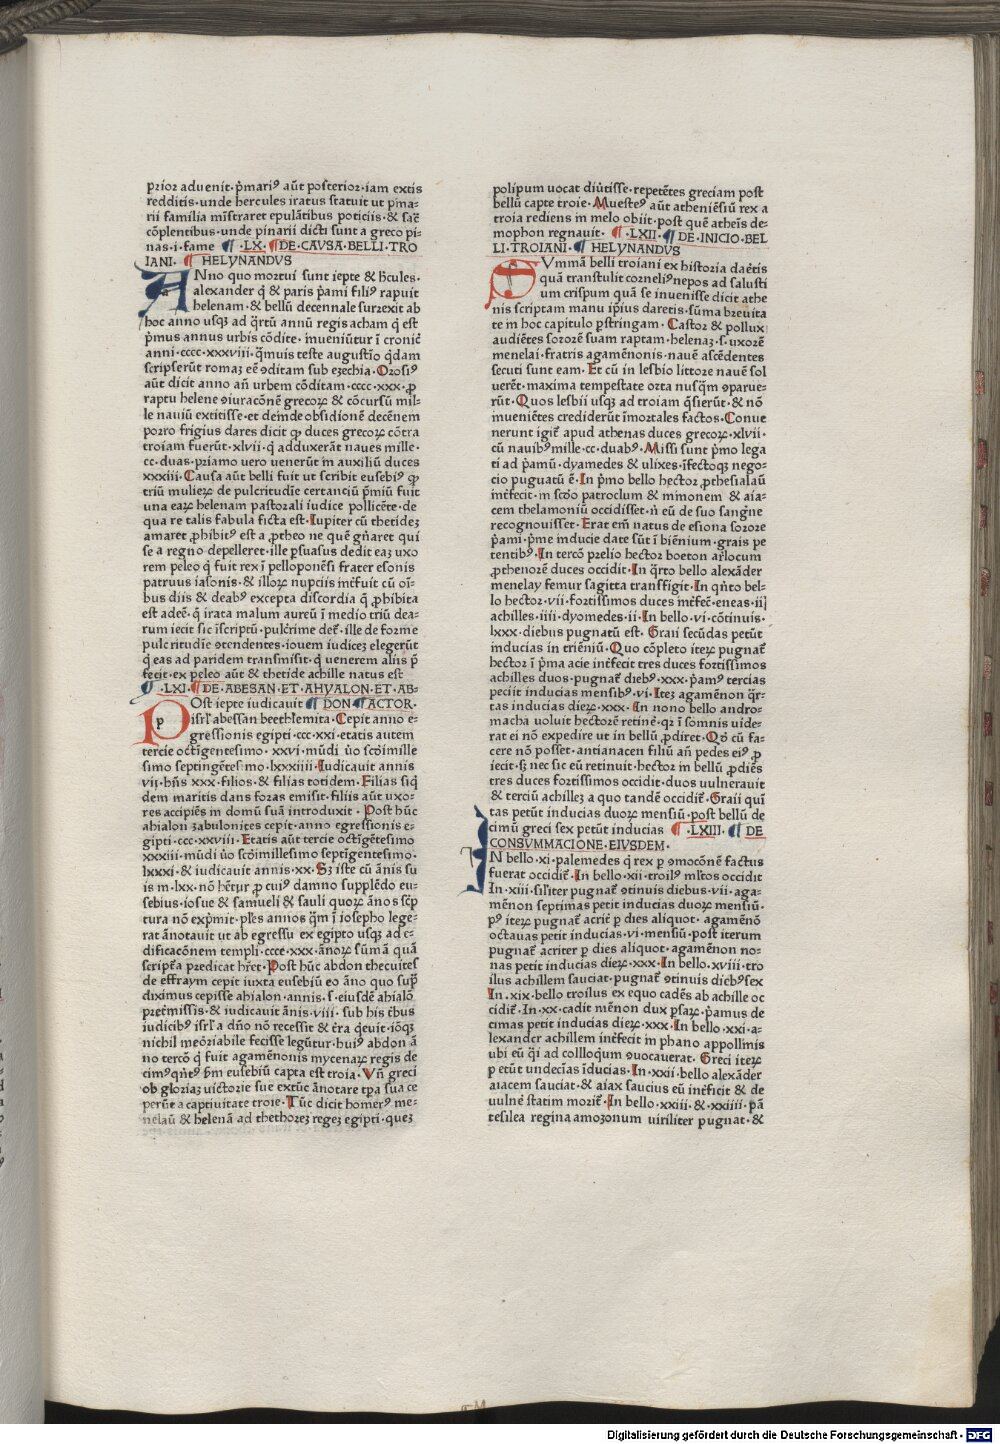 prior aduenit·p̃mariꝰ aũt posterior·iam extis
redditis·unde hercules iratus statuit ut pĩna-
rii familia mĩstraret epulãtibus poticiis·& sacẽ
cõplentibus·unde pinarii dicti sunt a greco pi-
nas·i·fame ¶·LX·¶DE·CAVSA·BELLI·TRO
IANI·¶ HELYNANDVS
ANno quo mortui sunt iepte & hcules·
alexander q̃ & paris p̃ami filiꝰ rapuit
helenam·& bellũ decennale surrexit ab
hoc anno usqꝫ ad q̃rtũ annũ regis acham q̃ est
p̃mus annus urbis cõdite·inueniũtur ĩ cronic̃
anni·cccc·xxxviii·q̃muis teste augustĩo q̃dam
scripserũt romaꝫ eẽ ꝯditam sub eꝫechia·Orosiꝰ
aũt dicit anno añ urbem cõditam·cccc·xxx·ꝓ
raptu helene ꝯiuracõnẽ grecoꝝ & cõcursũ mil-
le nauiũ extitisse·et deinde obsidionẽ decẽnem
porro frigius dares dicit ꝙ duces grecoꝝ cõtra
troiam fuerũt·xlvii·q̃ adduxerãt naues mille·
cc·duas·priamo uero uenerũt in auxiliũ duces
xxxiii·Causa aũt belli fuit ut scribit eusebiꝰ ꝙ
triũ mulieꝝ de pulcritudĩe certanciũ p̃miũ fuit
una eaꝝ helenam pastorali iudice pollicẽte·de
qua re talis fabula ficta est·Iupiter cũ thetideꝫ
amaret ꝓhibitꝰ est a ꝓtheo ne quẽ gñaret qui
se a regno depelleret·ille p̱suasus dedit eaꝫ uxo
rem peleo q̃ fuit rex ĩ pelloponẽsi frater esonis
patruus iasonis·& illoꝝ nupciis int̃fuit cũ oĩ-
bus diis & deabꝰ excepta discordia q̃ ꝓhibita
est adeẽ·q̃ irata malum aureũ ĩ medio triũ dea-
rum iecit sic ĩscriptũ·pulcrime det̃·ille de forme
pulcritudĩe ꝯtendentes·iouem iudiceꝫ elegerũt
q̃ eas ad paridem transmisit·q̃ uenerem aliis p̃
fecit·ex peleo aũt & thetide achille natus est
¶·LXI·¶DE·ABESAN·ET·AHYALON·ET·AB-
POst iepte iudicauit ¶ DON·¶ACTOR·
isrl̃ abessan beethlemita·Cepit anno e-
gressionis egipti·ccc·xxi·etatis autem
tercie octĩgentesimo·xxvi·mũdi ũo scõimille
simo septingẽtesimo·lxxxiiii·Iudicauit annis
vii·hñs xxx·filios·& filias totidem·Filias siq̃
dem maritis dans foras emisit·filiis aũt uxo-
res accipiẽs in domũ suã introduxit·Post hũc
ahialon ꝫabulonites cepit·anno egressionis e-
gipti·ccc·xxviii·Etatis aũt tercie octĩgẽtesimo
xxxiii·mũdi ũo scõimillesimo septĩgentesimo·
lxxxi·& iudicauit annis·xx·Sꝫ iste cũ ãnis su
is m·lxx·nõ hẽtur ꝓ cuiꝰ damno supplẽdo eu-
sebius·iosue & samueli & sauli quoꝝ ãnos sc̃p
tura nõ exp̃mit·ples annos q̃m ĩ iosepho lege-
rat ãnotauit ut ab egressu ex egipto usqꝫ ad e-
dificacõnem templi·cccc·xxx·ãnoꝝ sũmã quã
script̃a predicat hr̃et·Post hũc abdon thecuites
de effraym cepit iuxta eusebiũ eo ãno quo sup̃
diximus cepisse ahialon·annis·s·eiusdẽ ahialõ
pret̃missis·& iudicauit ãnis·viii·sub his t̃bus
iudicibꝰ isrl̃ a dño nõ recessit & t̃ra q̃euit·iõqꝫ
nichil meõziabile fecisse legũtur·huiꝰ abdon ã
no tercõ q̃ fuit agamẽnonis mycenaꝝ regis de
cimꝰqñtꝰ ẜm eusebiũ capta est troia·Vñ greci
ob gloriaꝫ uictorie sue extũc ãnotare tp̃a sua ce
perũt a captiuitate troie·Tũc dicit homerꝰ me-
nelaũ & helenã ad thethoreꝫ regeꝫ egipti·queꝫ
polipum uocat diũtisse·repetẽtes greciam post
bellũ capte troie·Muesteꝰ aũt atheniẽsiũ rex a
troia rediens in melo obiit·post quẽ atheĩs de-
mophon regnauit·¶·LXII·¶DE·INICIO·BEL
LI·TROIANI·¶ HELYNANDVS
SVmmã belli troiani ex historia daẽtis
quã transtulit corneliꝰ nepos ad salusti
um crispum quã se inuenisse dicit athe
nis scriptam manu ip̃ius daretis·sũma breuita
te in hoc capitulo p̱stringam·Castor & pollux
audiẽtes sororẽ suam raptam·helenaꝫ·s·uxorẽ
menelai·fratris agamẽnonis·nauẽ ascẽdentes
secuti sunt eam·Et cũ in lesbio littore nauẽ sol
uerẽt·maxima tempestate orta nusq̃m ꝯparue-
rũt·Quos lesbii usqꝫ ad troiam q̃sierũt·& nõ
inueniẽtes crediderũt ĩmortales factos·Conue
nerunt igit̃ apud athenas duces grecoꝝ·xlvii·
cũ nauibꝰ mille·cc·duabꝰ·Missi sunt p̃mo lega
ti ad p̃amũ·dyamedes & ulixes·ĩfectoqꝫ nego-
cio puguatũ ẽ·In p̃mo bello hector ꝓthesialaũ
int̃fecit·in scõo patroclum & minonem & aia-
cem thelamoniũ occidisset·ñ eũ de suo sangine
recognouisset·Erat em̃ natus de esiona sorore
p̃ami·p̃me inducie date sũt ĩ biẽnium·grais pe
tentibꝰ·In tercõ prelio hector boeton arlocum
ꝓthenorẽ duces occidit·In q̃rto bello alexãder
menelay femur sagitta transfigit·In qñto bel-
lo hector·vii·fortissimos duces int̃fec̃·eneas·ii
achilles·iiii·dyomedes·ii·In bello·vi·cõtinuis·
lxxx·diebus pugnatũ est·Graii secũdas petũt
inducias in triẽniũ·Quo cõpleto iteꝝ pugnat̃
hector ĩ p̃ma acie int̃fecit tres duces fortissimos
achilles duos·pugnat̃ diebꝰ·xxx·p̃amꝰ tercias
peciit inducias mensibꝰ·vi·Iteꝫ agamẽnon q̃r-
tas inducias dieꝝ·xxx·In nono bello andro-
macha uoluit hectorẽ retinẽ·qꝛ ĩ somnis uide-
rat ei nõ expedire ut in bellũ ꝓdiret·Qđ cũ fa-
cere nõ posset·antianacen filiũ añ pedes eiꝰ ꝓ
iecit·sꝫ nec sic eũ retinuit·hector in bellũ ꝓdiẽs
tres duces fortissimos occidit·duos uulnerauit
& terciũ achilleꝫ a quo tandẽ occidit̃·Graii quĩ
tas petũt inducias duoꝝ mensiũ·post bellũ de
cimũ greci sex petũt inducias ¶·LXIII·¶DE
CONSVMMACIONE·EIVSDEM·
IN bello·xi·palemedes q̃ rex p̱ ꝯmocõnẽ factus
fuerat occidit̃·In bello·xii·troilꝰ ml̃tos occidit
In·xiii·sil̃iter pugnat̃ ꝯtinuis diebus·vii·aga-
mẽnon septimas petit inducias duoꝝ mensiũ·
pꝰ iteꝝ pugnat̃ acrit̃ p̱ dies aliquot·agamẽnõ
octauas petit inducias·vi·mensiũ·post iterum
pugnat̃ acriter p̱ dies aliquot·agamẽnon no-
nas petit inducias dieꝝ·xxx·In bello·xviii·tro
ilus achillem sauciat·pugnat̃ ꝯtinuis diebꝰsex
In·xix·bello troilus ex equo cadẽs ab achille oc
cidit̃·In·xx·cadit mẽnon dux p̱saꝝ·p̃amus de
cimas petit inducias dieꝝ·xxx·In bello·xxi·a-
lexander achillem int̃fecit in phano appollinis
ubi eũ q̃i ad collloq̃um ꝯuocauerat·Greci iteꝝ
p̱etũt undecĩas ĩducias·In·xxii·bello alexãder
aiacem sauciat·& aiax saucius eũ int̃ficit & de
uulnẽ statim morit̃·In bello·xxiii·& xxiiii·pã
tesilea regina amoꝫonum uiriliter pugnat·&
Digitalisierung gefördert durch die Deutsche Forschungsgemeinschaft · DFG